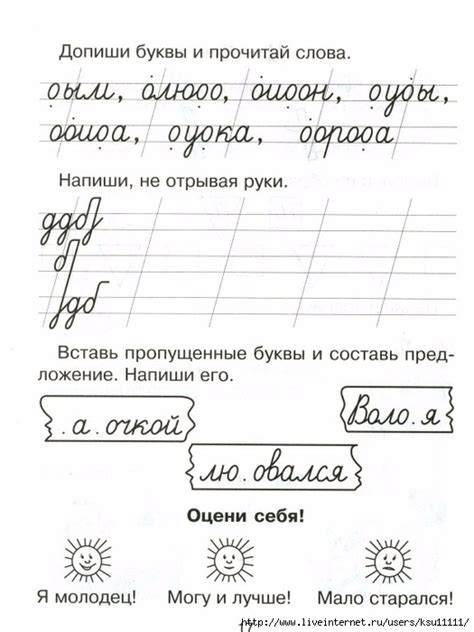 Допиши буквы и прочитай слова.
оым, олюоо, оиоон, оуоы,
ооиоа, оуока, оорооа
Напиши, не отрывая руки.
ддб
б
дб
Вставь пропущенные буквы и составь пред-
ложение. Напиши его.
.а.очкой
Воло.я
лю.овался
Оцени себя!
Я молодец!
Могу и лучше!
Мало старался!
http://www.liveinternet.ru/users/ksu11111/